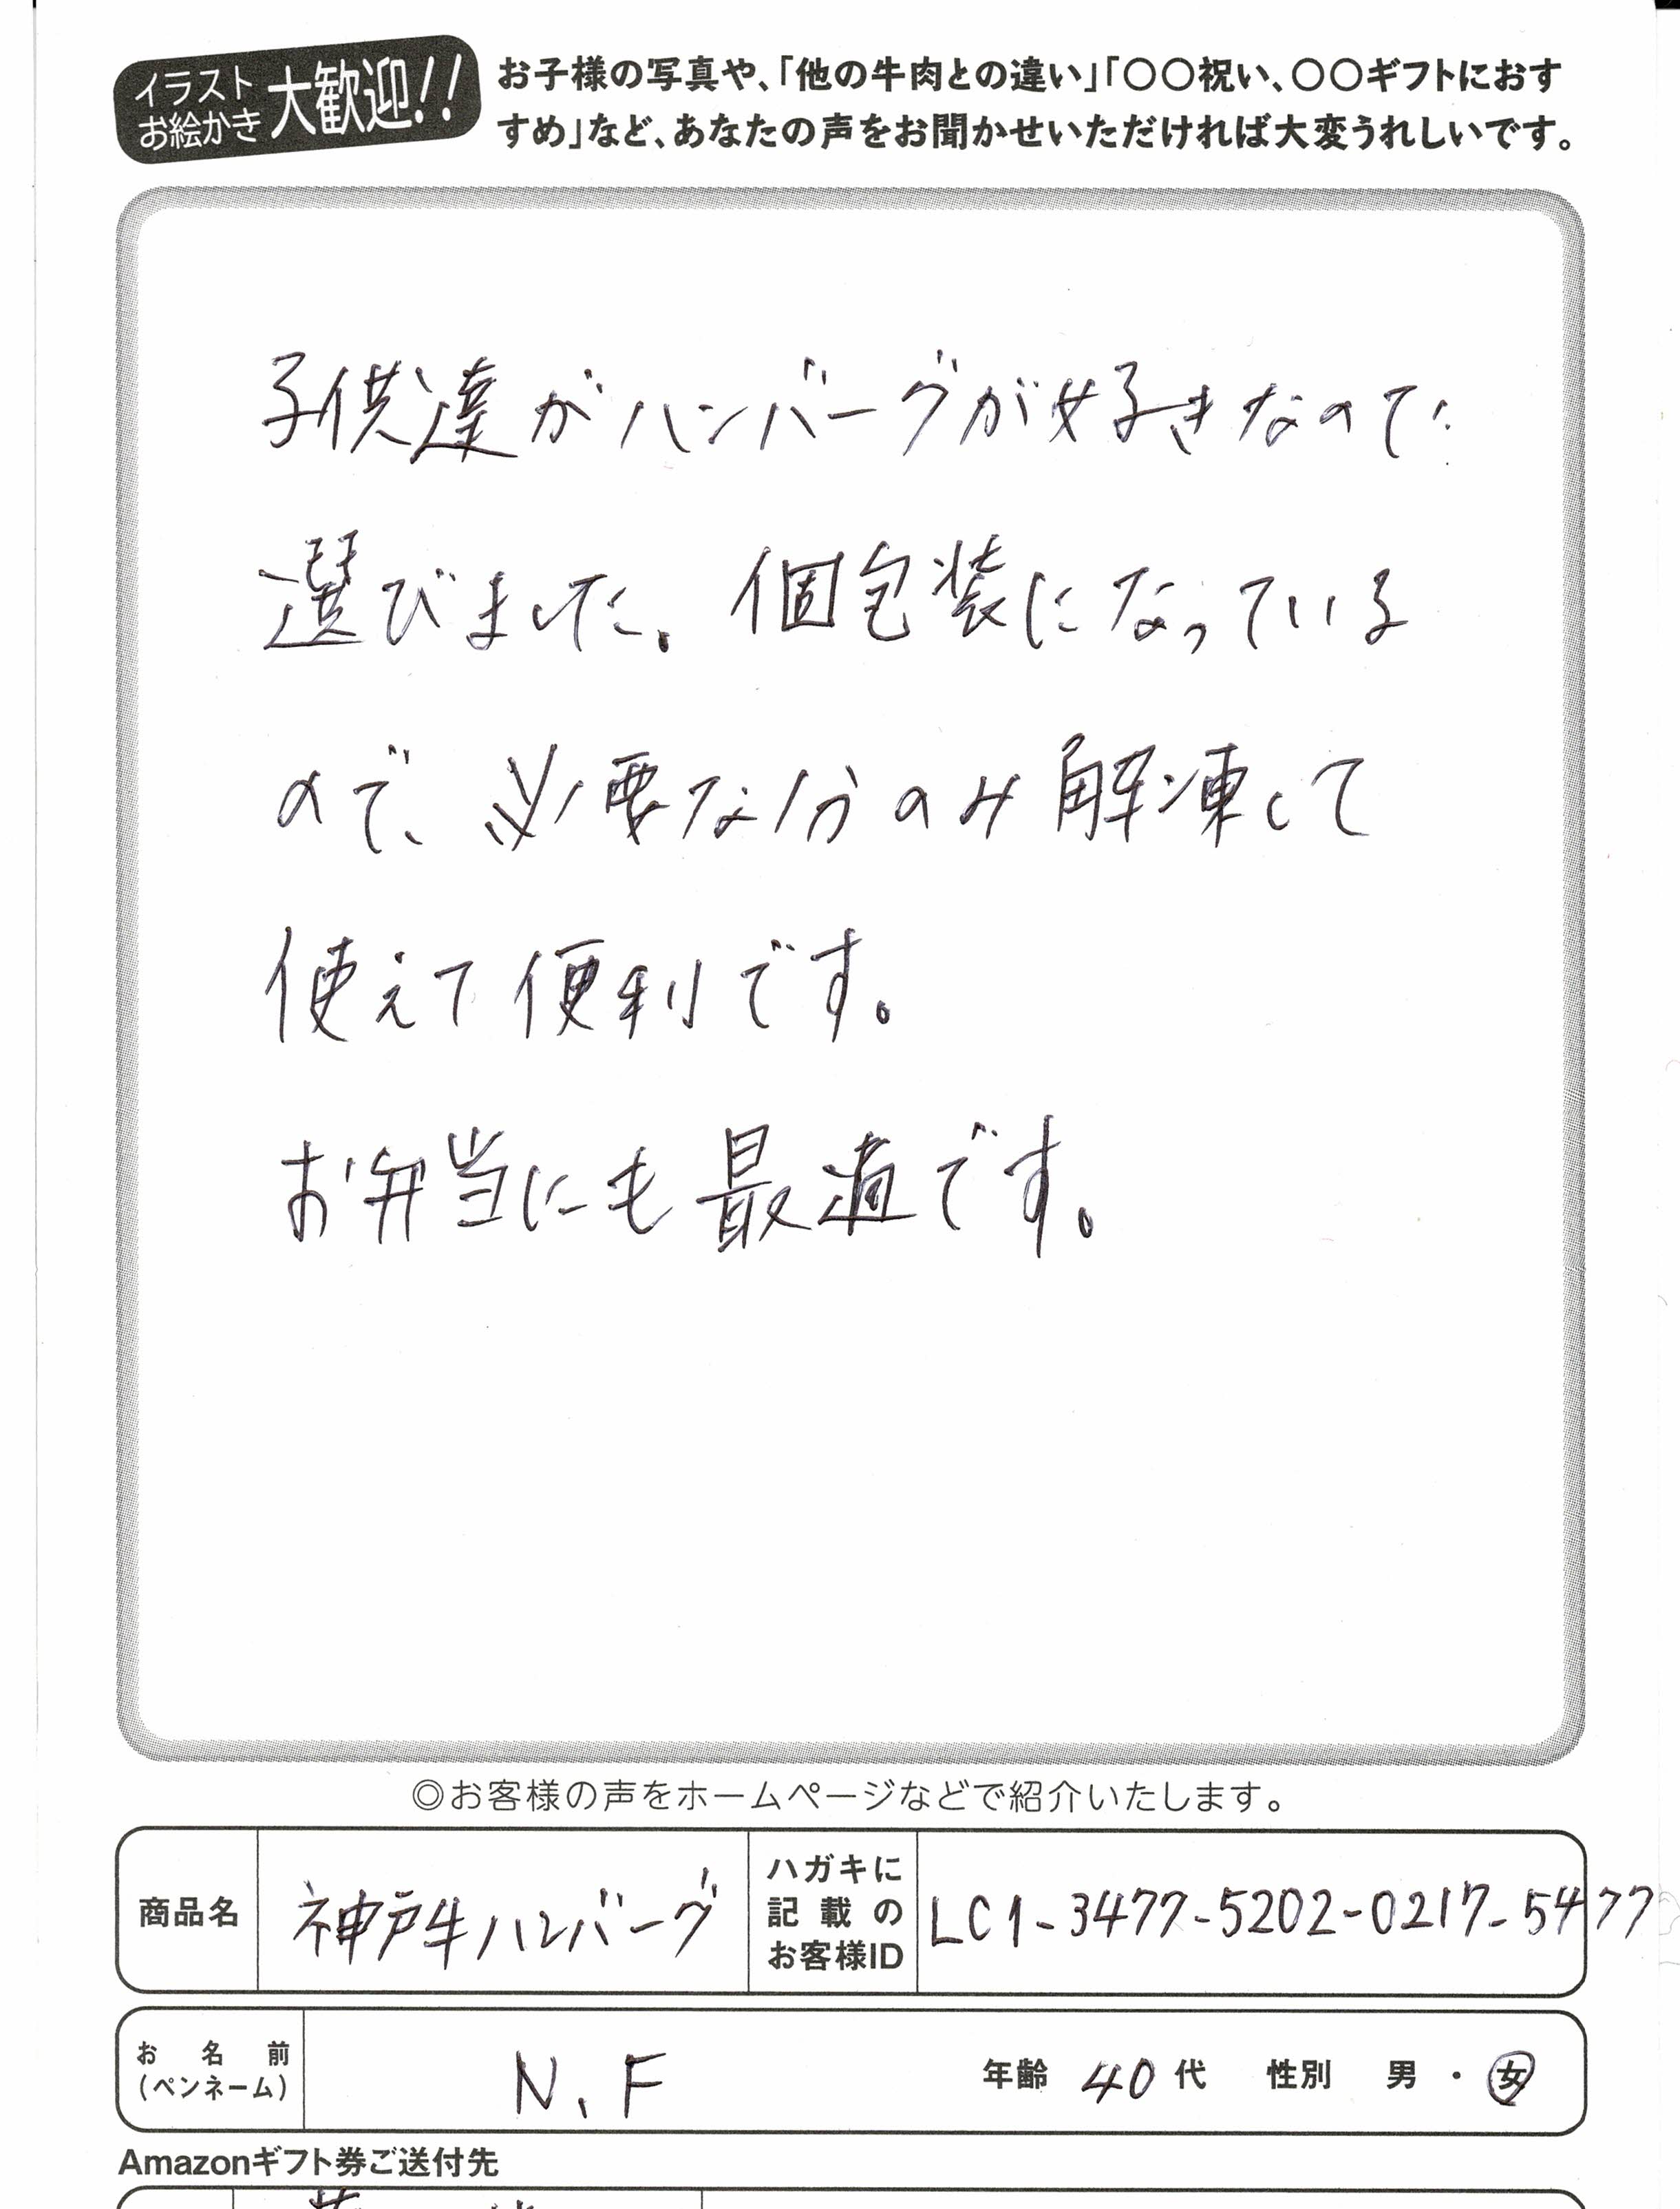 イラスト
お絵かき
大歓迎!!
お子様の写真や、「他の牛肉との違い」「〇〇祝い、〇〇ギフトにおす
すめ」など、あなたの声をお聞かせいただければ大変うれしいです。
子供達がハンバーグが好きなので
選びました。個包装になっている
ので、必要な分のみ解凍して
使えて便利です。
お弁当にも最適です。
◎お客様の声をホームページなどで紹介いたします。
商品名
神戸牛ハンバーグ
ハガキに
記載の
お客様ID
LC1-3477-5202-0217-5477
お名前
(ペンネーム)
N.F
年齢 40代 性別 男・女
Amazonギフト券ご送付先